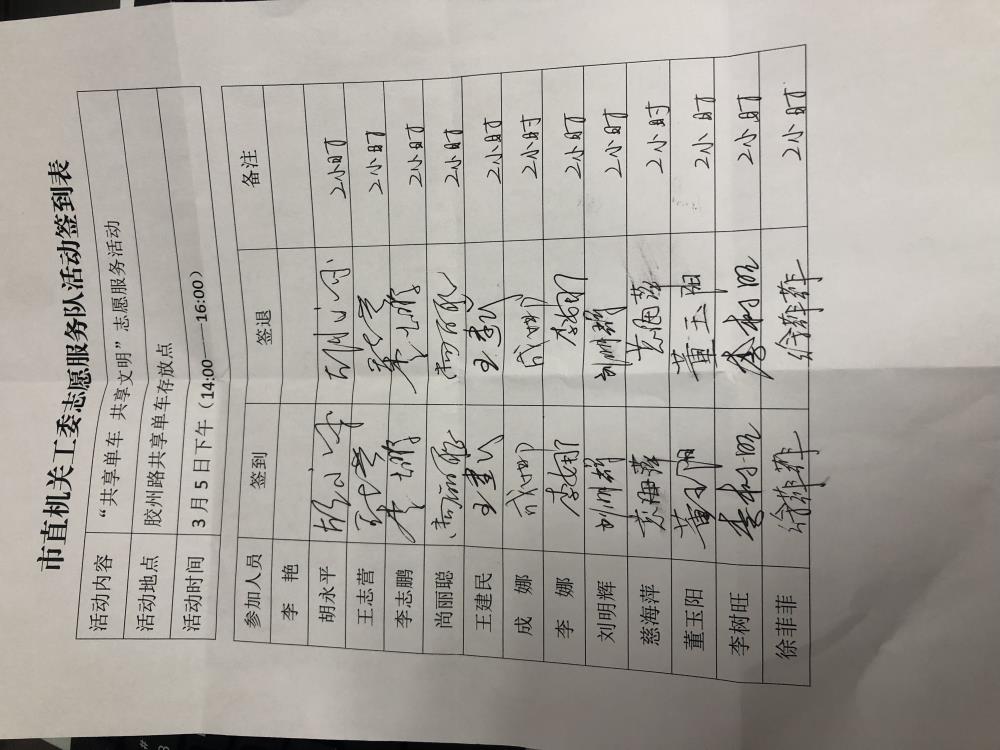 市直机关工委志愿服务队活动签到表
活动内容 “共享单车 共享文明”志愿服务活动
活动地点 胶州路共享单车存放点
活动时间 3月5日下午（14:00——16:00）
参加人员 签到 签退 备注
李 艳
胡永平 2小时
王志营 2小时
李志鹏 2小时
尚丽聪 尚丽聪 2小时
王建民 王建民 王建民 2小时
成 娜 成娜 成娜 2小时
李 娜 李娜 李娜 2小时
刘明辉 刘明辉 刘明辉 2小时
慈海萍 慈海萍 慈海萍 2小时
董玉阳 董玉阳 董玉阳 2小时
李树旺 李树旺 李树旺 2小时
徐菲菲 徐菲菲 徐菲菲 2小时